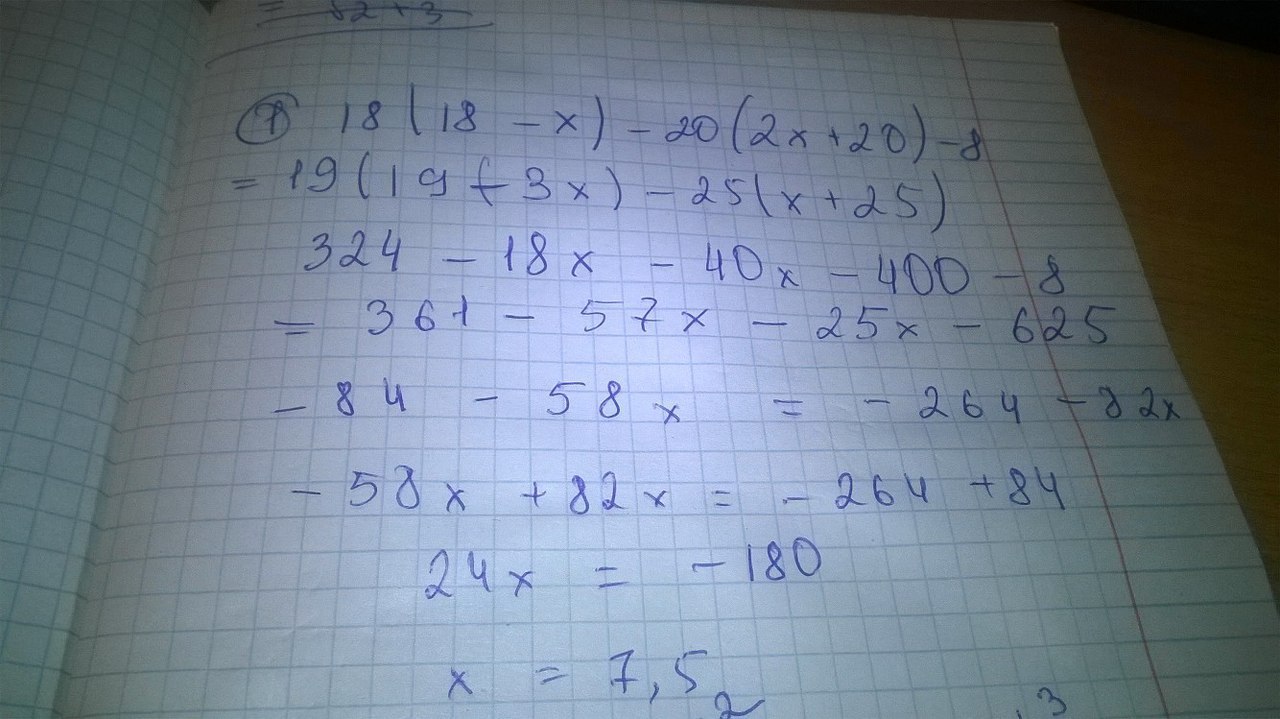 = 82 + 3
⑦ 18(18 - x) - 20(2x + 20) - 8
= 19(19 - 3x) - 25(x + 25)
324 - 18x - 40x - 400 - 8
= 361 - 57x - 25x - 625
- 84 - 58x = - 264 - 82x
- 58x + 82x = - 264 + 84
24x = - 180
x = 7,5
2 , 3